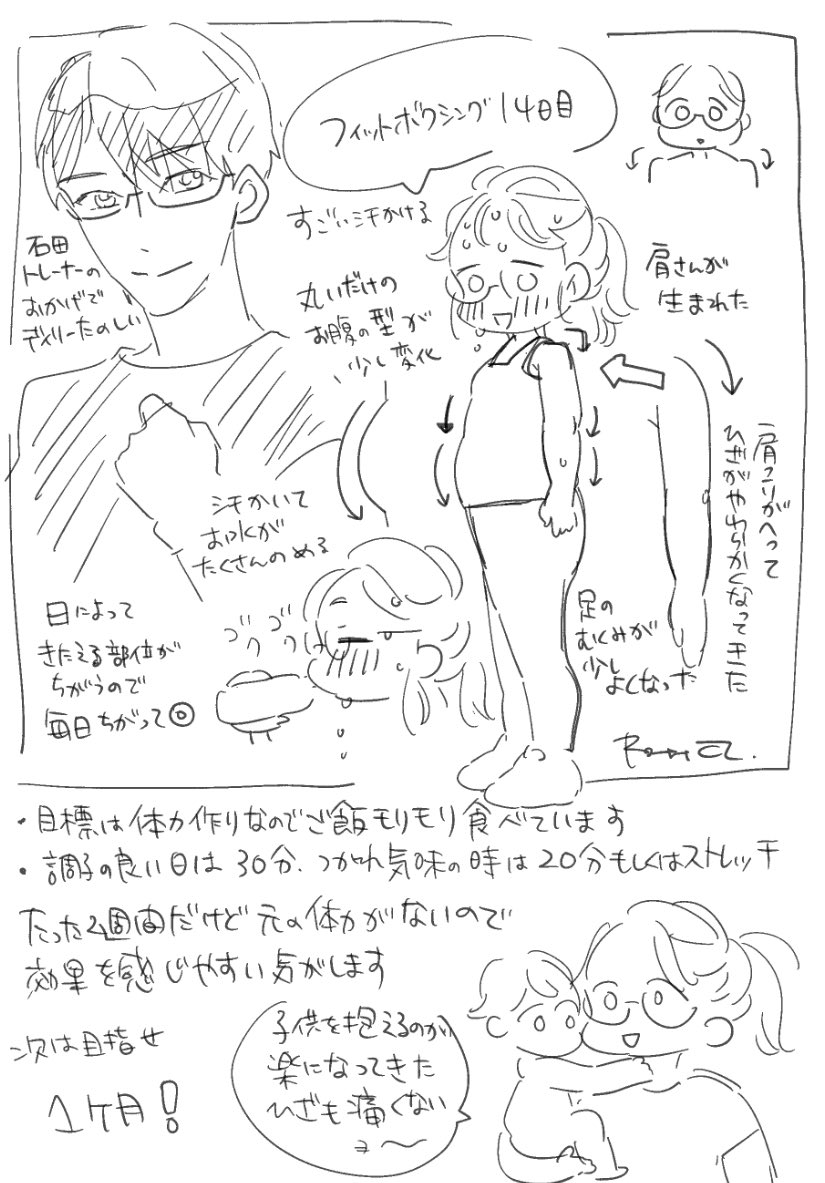 フィットボクシング14日目
石田
トレーナーの
おかげで
デイリーたのしい
すごい汗かける
丸いだけの
お腹の型が
少し変化
肩さんが
生まれた
肩こりがへって
ひざがやわらかくなってきた
汗かいて
お水が
たくさんのめる
ゴク ゴク
日によって
きたえる部位が
ちがうので
毎日ちがって◎
足の
むくみが
少し
よくなった
・目標は体力作りなのでご飯モリモリ食べています
・調子の良い日は30分、つかれ気味の時は20分もしくはストレッチ
たった2週間だけど元の体力がないので
効果を感じやすい気がします
次は目指せ
1ケ月!
子供を抱えるのが
楽になってきた
ひざも痛くない
ヨ〜